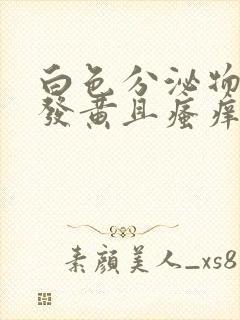 白色分泌物
發黃且瘙痒
素顏美人_xs8